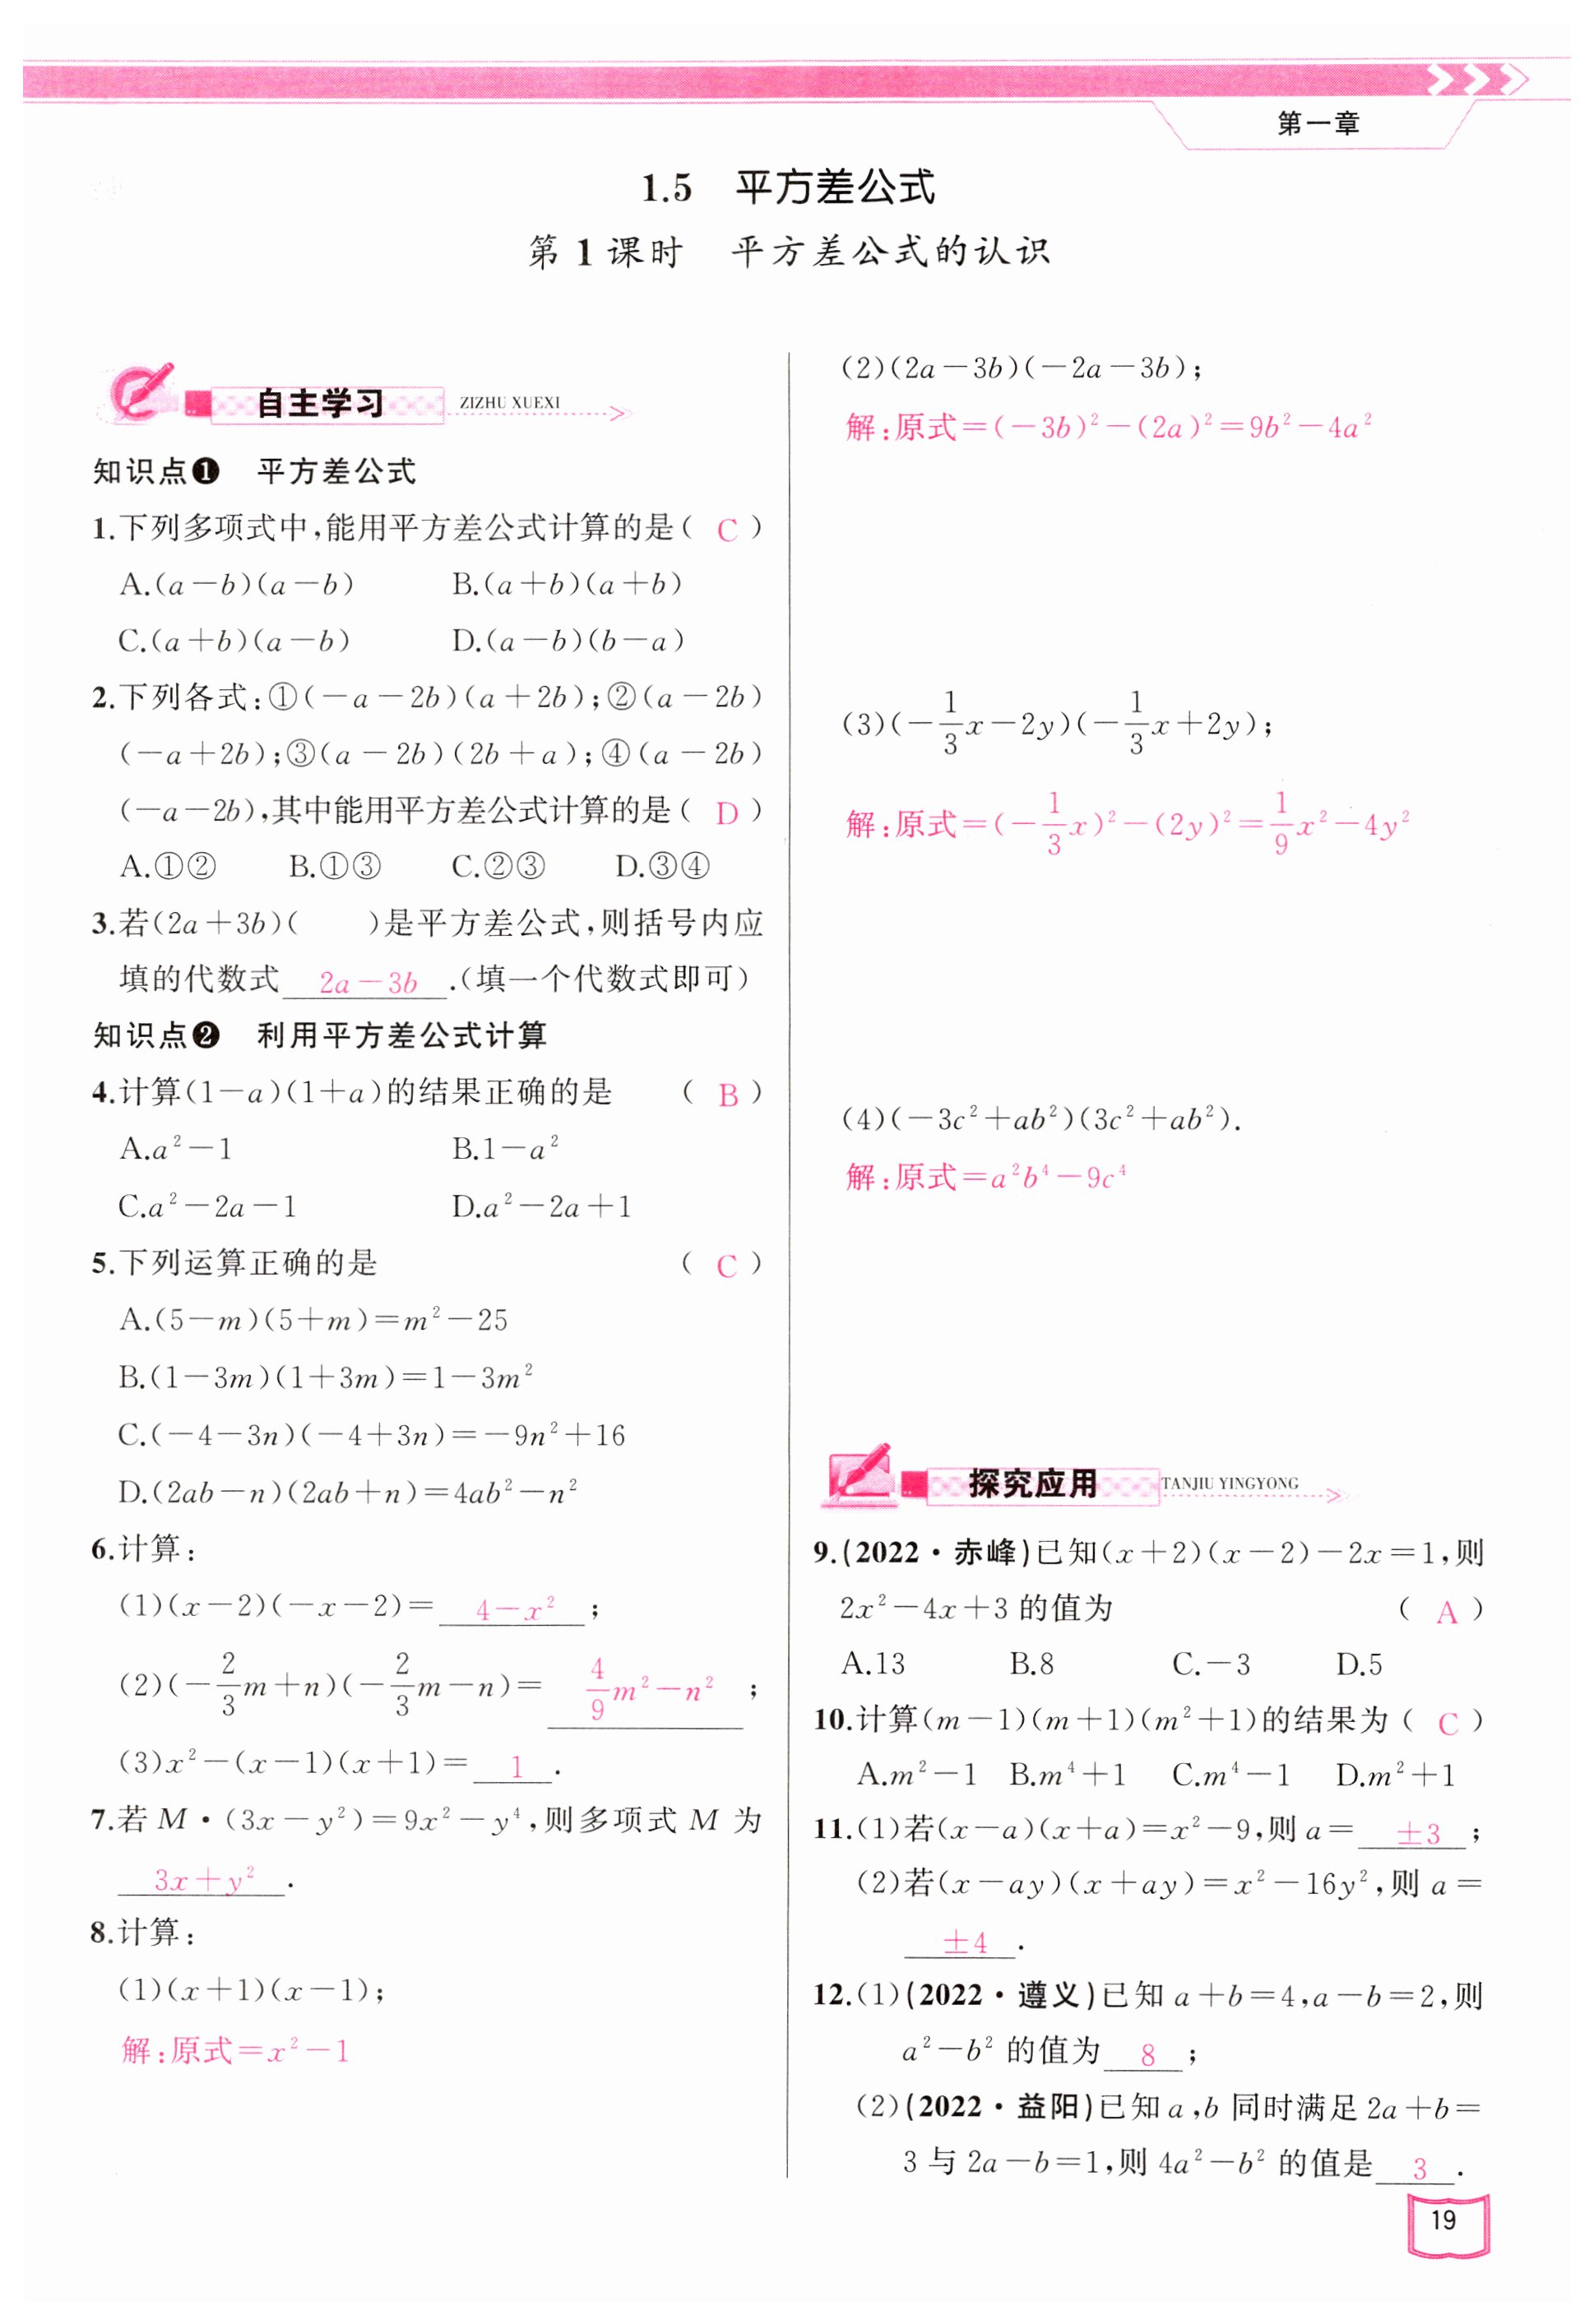 第一章
1.5 平方差公式
第 1 课时 平方差公式的认识
自主学习 ZIZHU XUEXI
知识点❶ 平方差公式
1.下列多项式中,能用平方差公式计算的是( C )
A.(a-b)(a-b) B.(a+b)(a+b)
C.(a+b)(a-b) D.(a-b)(b-a)
2.下列各式:①(-a-2b)(a+2b);②(a-2b)
(-a+2b);③(a-2b)(2b+a);④(a-2b)
(-a-2b),其中能用平方差公式计算的是( D )
A.①② B.①③ C.②③ D.③④
3.若(2a+3b)( )是平方差公式,则括号内应
填的代数式 2a-3b .(填一个代数式即可)
知识点❷ 利用平方差公式计算
4.计算(1-a)(1+a)的结果正确的是 ( B )
A.a²-1 B.1-a²
C.a²-2a-1 D.a²-2a+1
5.下列运算正确的是 ( C )
A.(5-m)(5+m)=m²-25
B.(1-3m)(1+3m)=1-3m²
C.(-4-3n)(-4+3n)=-9n²+16
D.(2ab-n)(2ab+n)=4ab²-n²
6.计算:
(1)(x-2)(-x-2)= 4-x² ;
(2)(-2/3m+n)(-2/3m-n)= 4/9m²-n² ;
(3)x²-(x-1)(x+1)= 1 .
7.若 M·(3x-y²)=9x²-y⁴,则多项式 M 为
3x+y² .
8.计算:
(1)(x+1)(x-1);
解:原式=x²-1
(2)(2a-3b)(-2a-3b);
解:原式=(-3b)²-(2a)²=9b²-4a²
(3)(-1/3x-2y)(-1/3x+2y);
解:原式=(-1/3x)²-(2y)²=1/9x²-4y²
(4)(-3c²+ab²)(3c²+ab²).
解:原式=a²b⁴-9c⁴
探究应用 TANJIU YINGYONG
9.(2022·赤峰)已知(x+2)(x-2)-2x=1,则
2x²-4x+3 的值为 ( A )
A.13 B.8 C.-3 D.5
10.计算(m-1)(m+1)(m²+1)的结果为( C )
A.m²-1 B.m⁴+1 C.m⁴-1 D.m²+1
11.(1)若(x-a)(x+a)=x²-9,则 a= ±3 ;
(2)若(x-ay)(x+ay)=x²-16y²,则 a=
±4 .
12.(1)(2022·遵义)已知 a+b=4,a-b=2,则
a²-b² 的值为 8 ;
(2)(2022·益阳)已知 a,b 同时满足 2a+b=
3 与 2a-b=1,则 4a²-b² 的值是 3 .
19